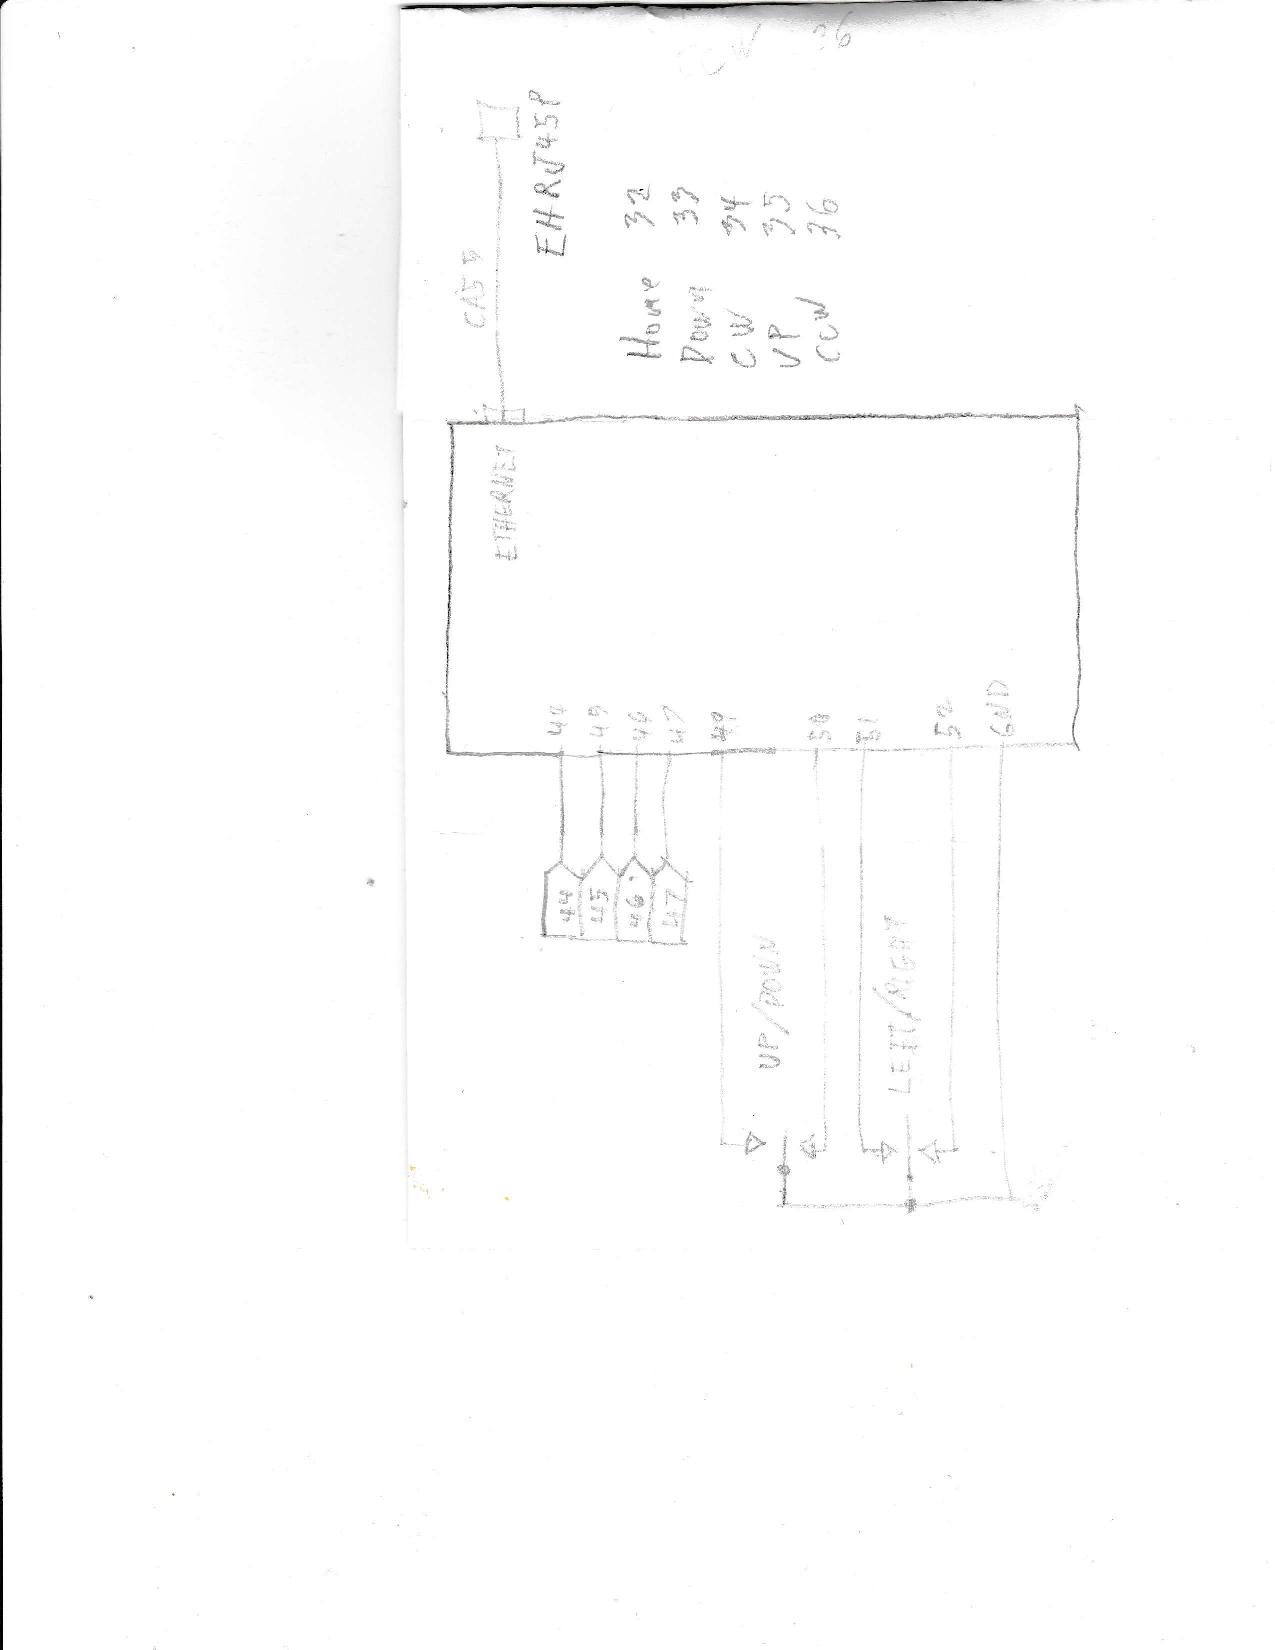 CCW 36
EHRJ45P
Home 32
Down 33
CW 34
UP 35
CCW 36
ETHERNET
44
46
47
49
50
51
52
GND
44
45
46
47
UP/DOWN
LEFT/RIGHT